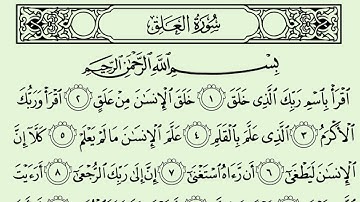 سُورَةُ العَلَقِ
بِسْمِ اللَّهِ الرَّحْمَٰنِ الرَّحِيمِ
ٱقْرَأْ بِٱسْمِ رَبِّكَ ٱلَّذِى خَلَقَ ١ خَلَقَ ٱلْإِنسَٰنَ مِنْ عَلَقٍ ٢ ٱقْرَأْ وَرَبُّكَ
ٱلْأَكْرَمُ ٣ ٱلَّذِى عَلَّمَ بِٱلْقَلَمِ ٤ عَلَّمَ ٱلْإِنسَٰنَ مَا لَمْ يَعْلَمْ ٥ كَلَّآ إِنَّ
ٱلْإِنسَٰنَ لَيَطْغَىٰٓ ٦ أَن رَّءَاهُ ٱسْتَغْنَىٰٓ ٧ إِنَّ إِلَىٰ رَبِّكَ ٱلرُّجْعَىٰٓ ٨ أَرَءَيْتَ